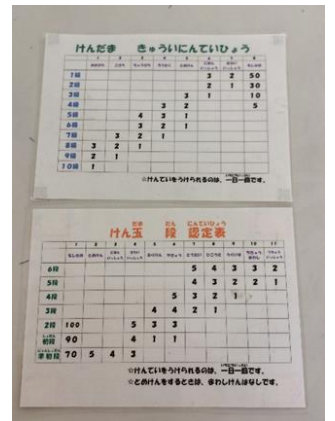 けんだま きゅういにんていひょう
1 2 3 4 5 6 7 8
おおざら こざら ちゅうざら ろうそく とめけん もしかめ
1級 3 2 50
2級 2 1 30
3級 3 1 10
4級 3 2 5
5級 4 3 1
6級 3 2 1
7級 3 2 1
8級 3 2 1
9級 2 1
10級 1
☆けんていをうけられるのは、一日一回です。
けん玉 段 認定表
だま だん にんていひょう
1 2 3 4 5 6 7 8 9 10 11
もしかめ とめけん
6段 5 4 3 3 2
5段 4 3 2 2 1
4段 5 3 2 1
3段 4 4 2 1
2段 100 5 3 3
初段 90 4 1 1
準初段 70 5 4 3
☆けんていをうけられるのは、一日一回です。
☆とめけんをするときは、まわしけんはなしです。